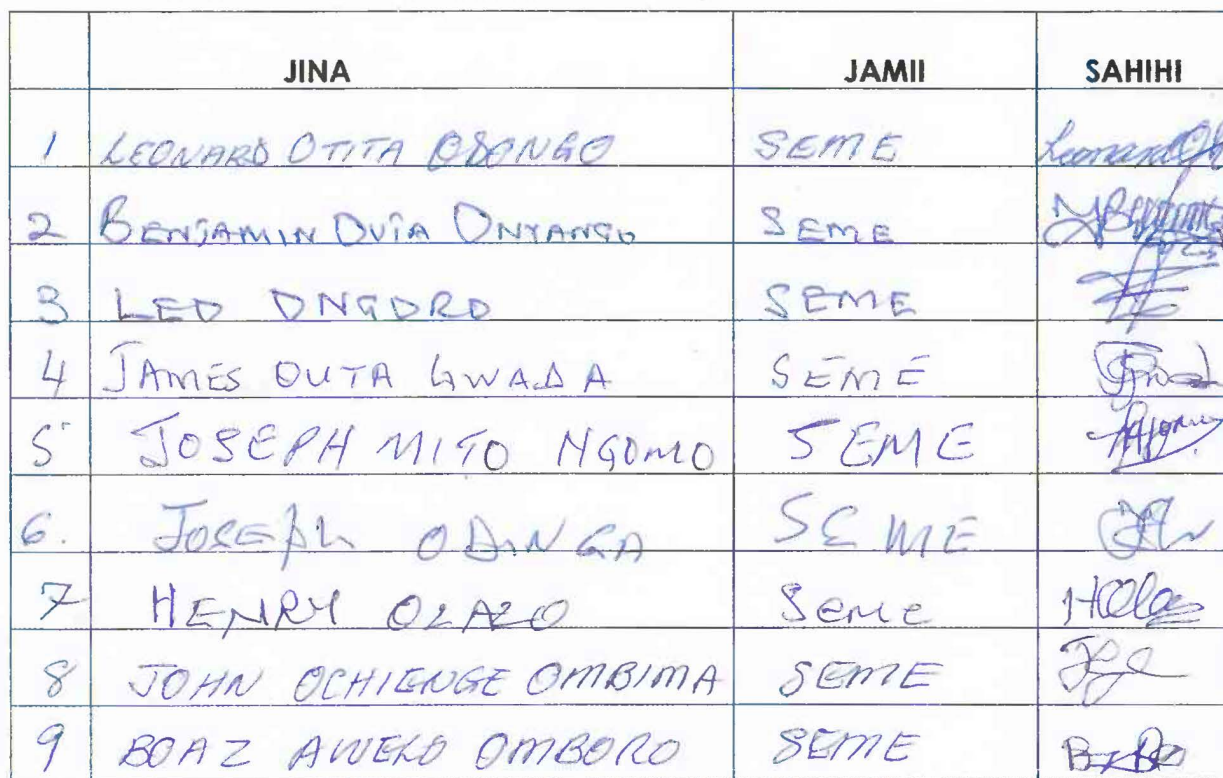 JINA JAMII SAHIHI
1 LEONARD OTITA OBONGO SEME
2 BENJAMIN OUTA ONYANGO SEME
3 LEO ONGORO SEME
4 JAMES OUTA GWADA SEME
5 JOSEPH MITO NGOMO SEME
6. JOSEPh ODINGA SEME
7 HENRY OLALO SEME
8 JOHN OCHIENGE OMBIMA SEME
9 BOAZ AWELO OMBORO SEME